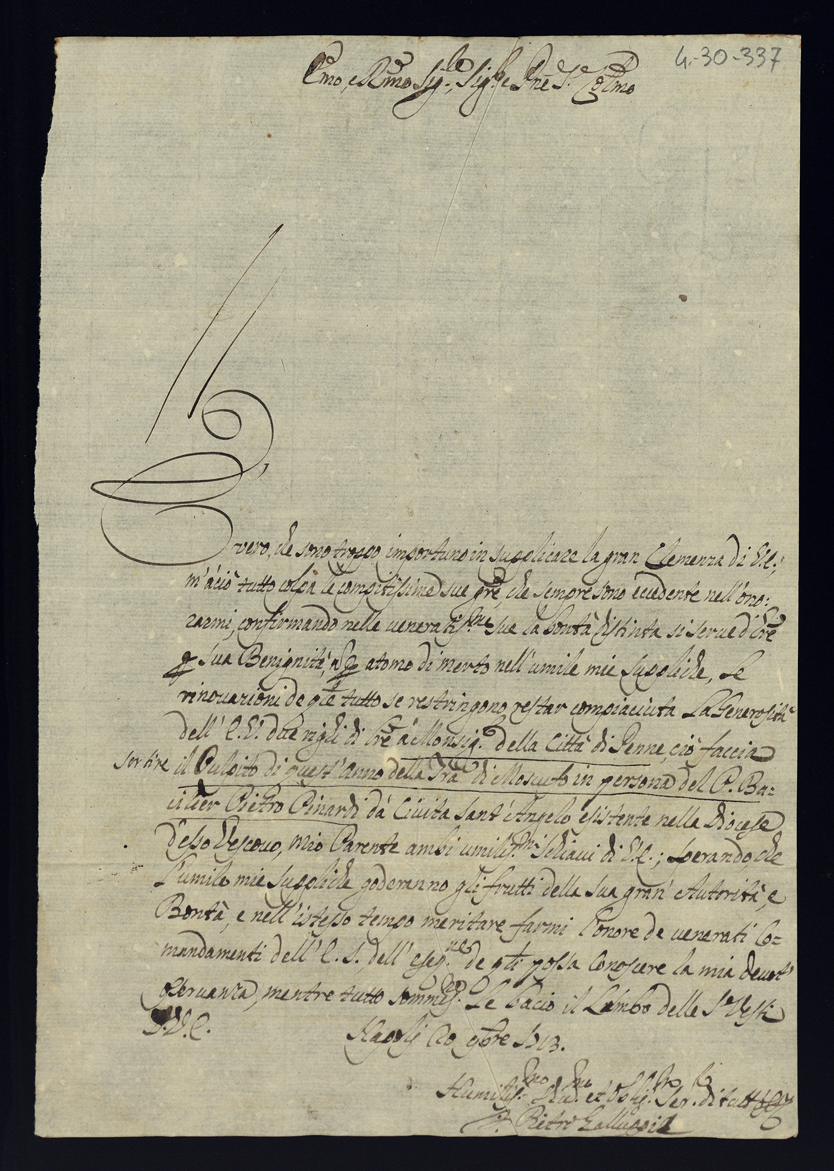 4-30-337
Emo, e Rmo Sig.re, Sig.re e Pne
È vero, che sono troppo importuno in supplicare la gran Clemenza di V.E.;
m'à ciò tutto colpa le compitissime sue gre, che sempre sono eccedente nell'ono=
rarmi, confirmando nelle veneratis.me sue la bontà distinta si serve d'
p sua Benignità, atomo di merto nell'umile mie suppliche, Le
rinovazioni de tutto se restringono restar compiaciuta La Generosità
dell'E.V. due righi di à Monsig.r della Città di Penne, ciò faccia
sortire il Pulpito di quest'Anno della Tra di Moscufo in persona del P. Ba=
cilier Pietro Pinardi dà Civita Sant'Angelo esistente nella Diocese
d'esso Vescovo, mio Parente ambi umilis.mi schiavi di V.E.; sperando che
l'umile mie suppliche goderanno gli frutti della sua gran' Autorità, e
Bontà, e nell'istesso tempo meritare farmi l'onore de venerati Co=
mandamenti dell'E.S., dell' de possa conoscere la mia devot'
osservanza, mentre tutto Le bacio il Lembo delle S.e Vesti
S.V.E. Napoli 20 9bre 1713.
Humilis.mo et Oblig. Ser. di
Pietro